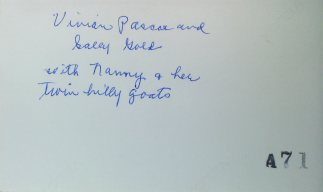 Vivian Pascoe and
Sally Gold
with Nanny & her
twin billy goats
A71